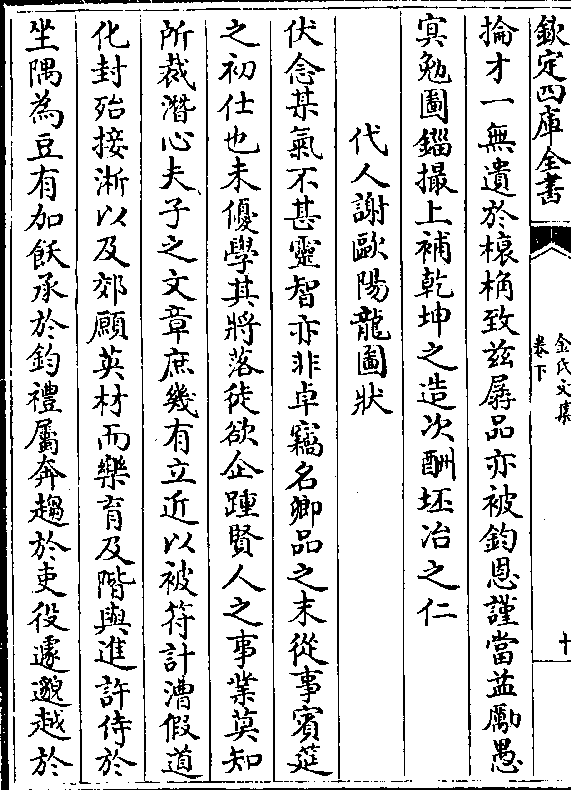 欽定四庫全書
金氏文集
卷下
十
掄才一無遺於榱桷致兹孱品亦被鈞恩謹當益勵愚
㝠勉圖錙撮上補乾坤之造次酬坯冶之仁
代人謝歐陽龍圖狀
伏念某氣不甚靈智亦非卓竊名卿品之末從事賓筵
之初仕也未優學其將落徒欲企踵賢人之事業莫知
所裁潛心夫子之文章庶幾有立近以被符計漕假道
化封殆接淅以及郊願英材而樂育及階與進許侍於
坐隅為豆有加飫承於鈞禮屬奔趨於吏役遽邈越於